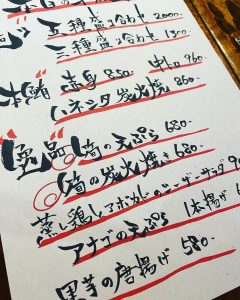 五種盛り合わせ 2000-
三種盛り合わせ 1300
本鮪 赤身 850- 中トロ 960-
ハネシタ炭火焼 860-
の天ぷら 680-
の炭火焼き 680-
蒸し鶏とアボカドのシーザーサラダ
アナゴの天ぷら 1本揚げ
里芋の唐揚げ 580-